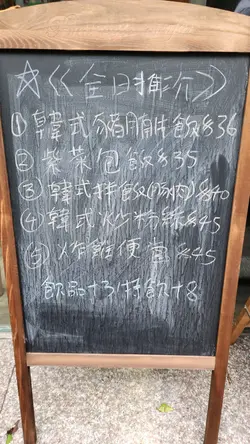 ☆《今日推介》
① 韓式豬腩飯$36
② 紫菜包飯$35
③ 韓式拌飯(豚肉)$40
④ 韓式炒粉絲$45
⑤ 炸雞便當$45
飲品+3/特飲+8